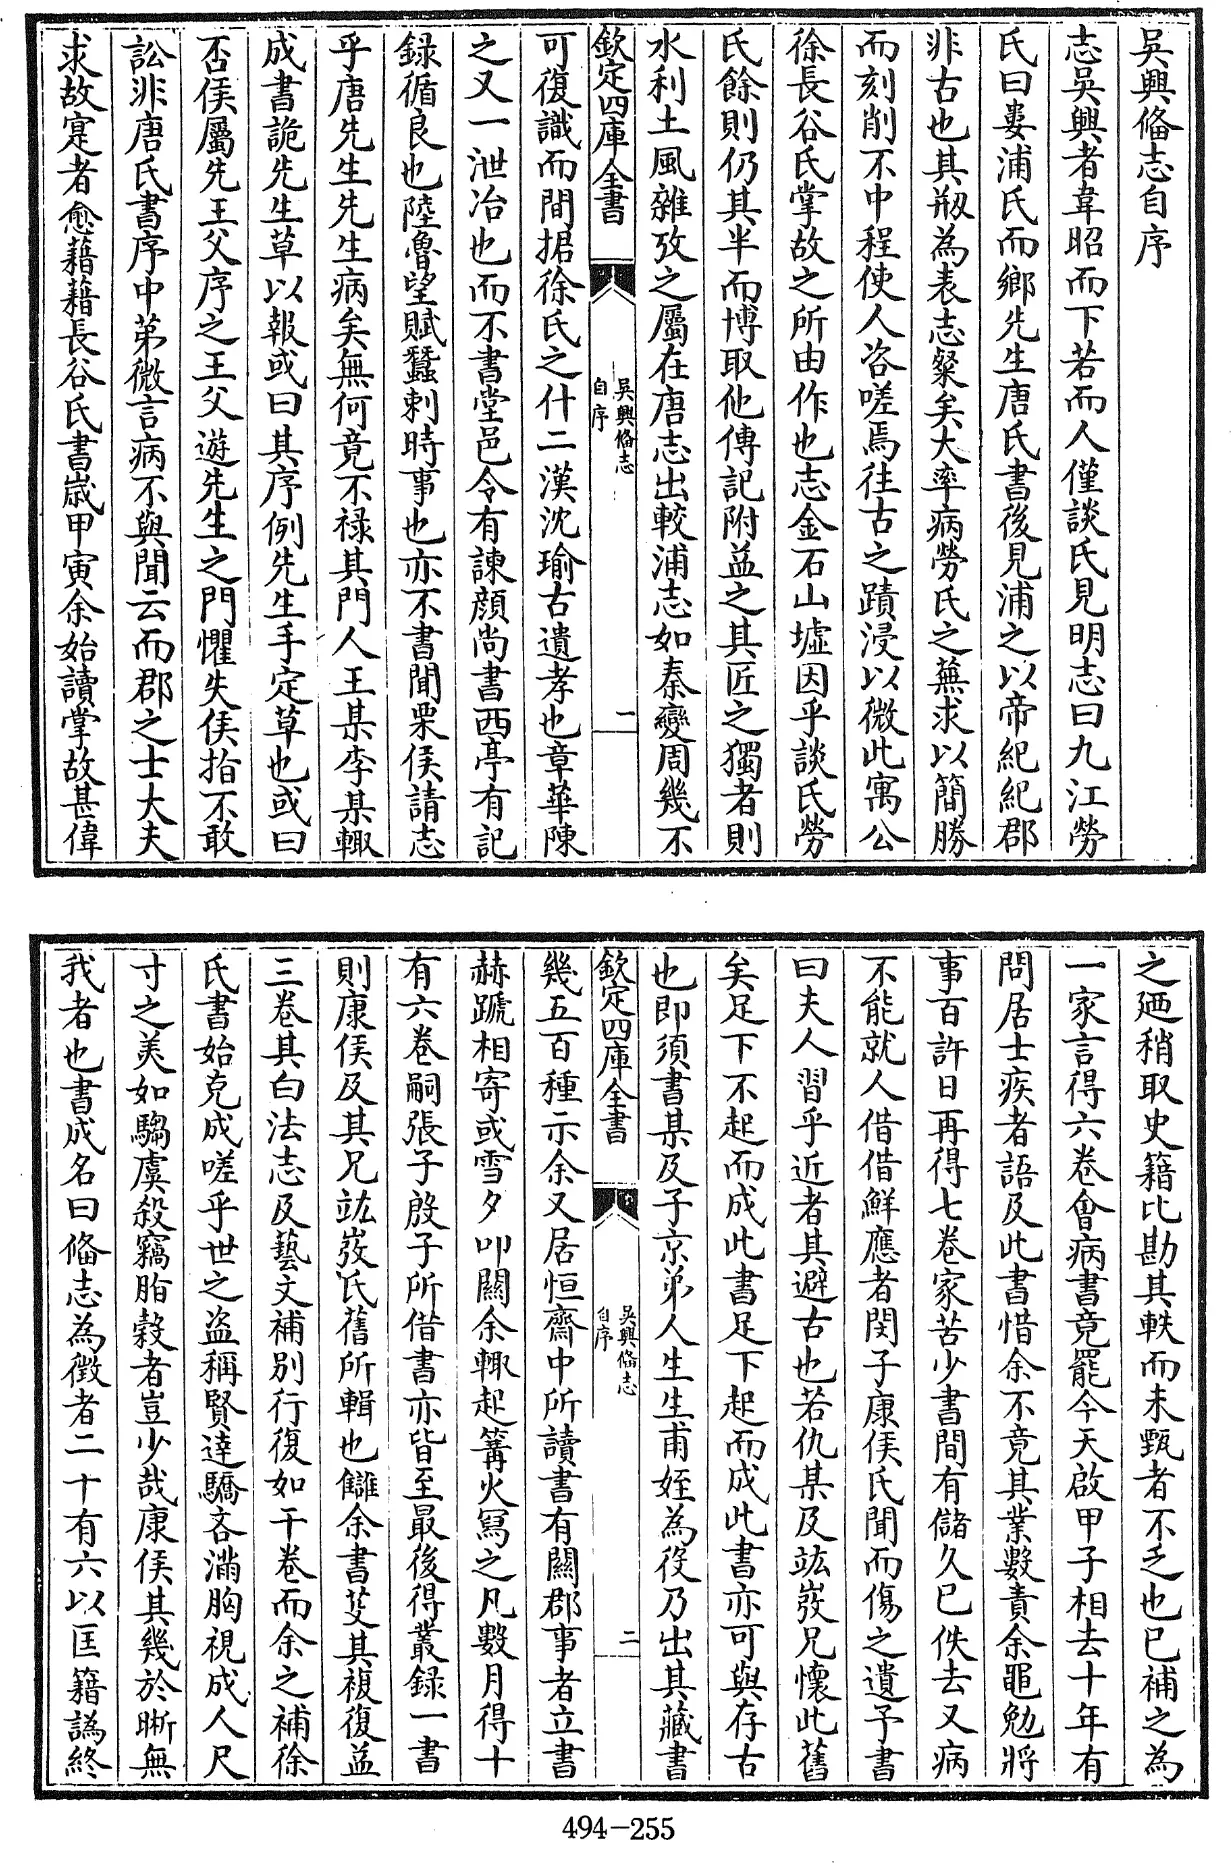 吳興備志自序
志吳興者韋昭而下若而人僅談氏見明志曰九江勞
氏曰婁浦氏而鄉先生唐氏書後見浦之以帝紀紀郡
非古也其剏為表志粲矣大率病勞氏之蕪求以簡勝
而刻削不中程使人咨嗟焉往古之蹟浸以微此寓公
徐長谷氏掌故之所由作也志金石山墟因乎談氏勞
氏餘則仍其半而博取他傳記附益之其匠之獨者則
水利土風雜攷之屬在唐志出較浦志如秦變周幾不
欽定四庫全書
吳興備志
自序
一
可復識而間掎徐氏之什二漢沈瑜古遺孝也章華陳
之又一泄冶也而不書堂邑令有諫顔尚書西亭有記
録循良也陸魯望賦蠶刺時事也亦不書聞栗侯請志
乎唐先生先生病矣無何竟不禄其門人王某李某輙
成書詭先生草以報或曰其序例先生手定草也或曰
否侯屬先王父序之王父遊先生之門懼失侯指不敢
訟非唐氏書序中苐微言病不與聞云而郡之士大夫
求故寔者愈藉藉長谷氏書嵗甲寅余始讀掌故甚偉
之廼稍取史籍比勘其軼而未甄者不乏也已補之為
一家言得六卷會病書竟罷今天啟甲子相去十年有
問居士疾者語及此書惜余不竟其業數責余黽勉將
事百許日再得七卷家苦少書間有儲久已佚去又病
不能就人借借鮮應者閔子康侯氏聞而傷之遺予書
曰夫人習乎近者其避古也若仇某及竑嵏兄懷此舊
矣足下不起而成此書足下起而成此書亦可與存古
也即須書某及子京弟人生生甫姪為役乃出其藏書
欽定四庫全書
吳興備志
自序
二
幾五百種示余又居恒齋中所讀書有關郡事者立書
赫蹏相寄或雪夕叩關余輙起篝火寫之凡數月得十
有六卷嗣張子殷子所借書亦皆至最後得叢録一書
則康侯及其兄竑嵏氏舊所輯也讎余書芟其複復益
三卷其白法志及藝文補別行復如干卷而余之補徐
氏書始克成嗟乎世之盗稱賢達驕吝滿胸視成人尺
寸之美如騶虞殺竊脂穀者豈少哉康侯其幾於晰無
我者也書成名曰備志為徴者二十有六以匡籍譌終
494-255